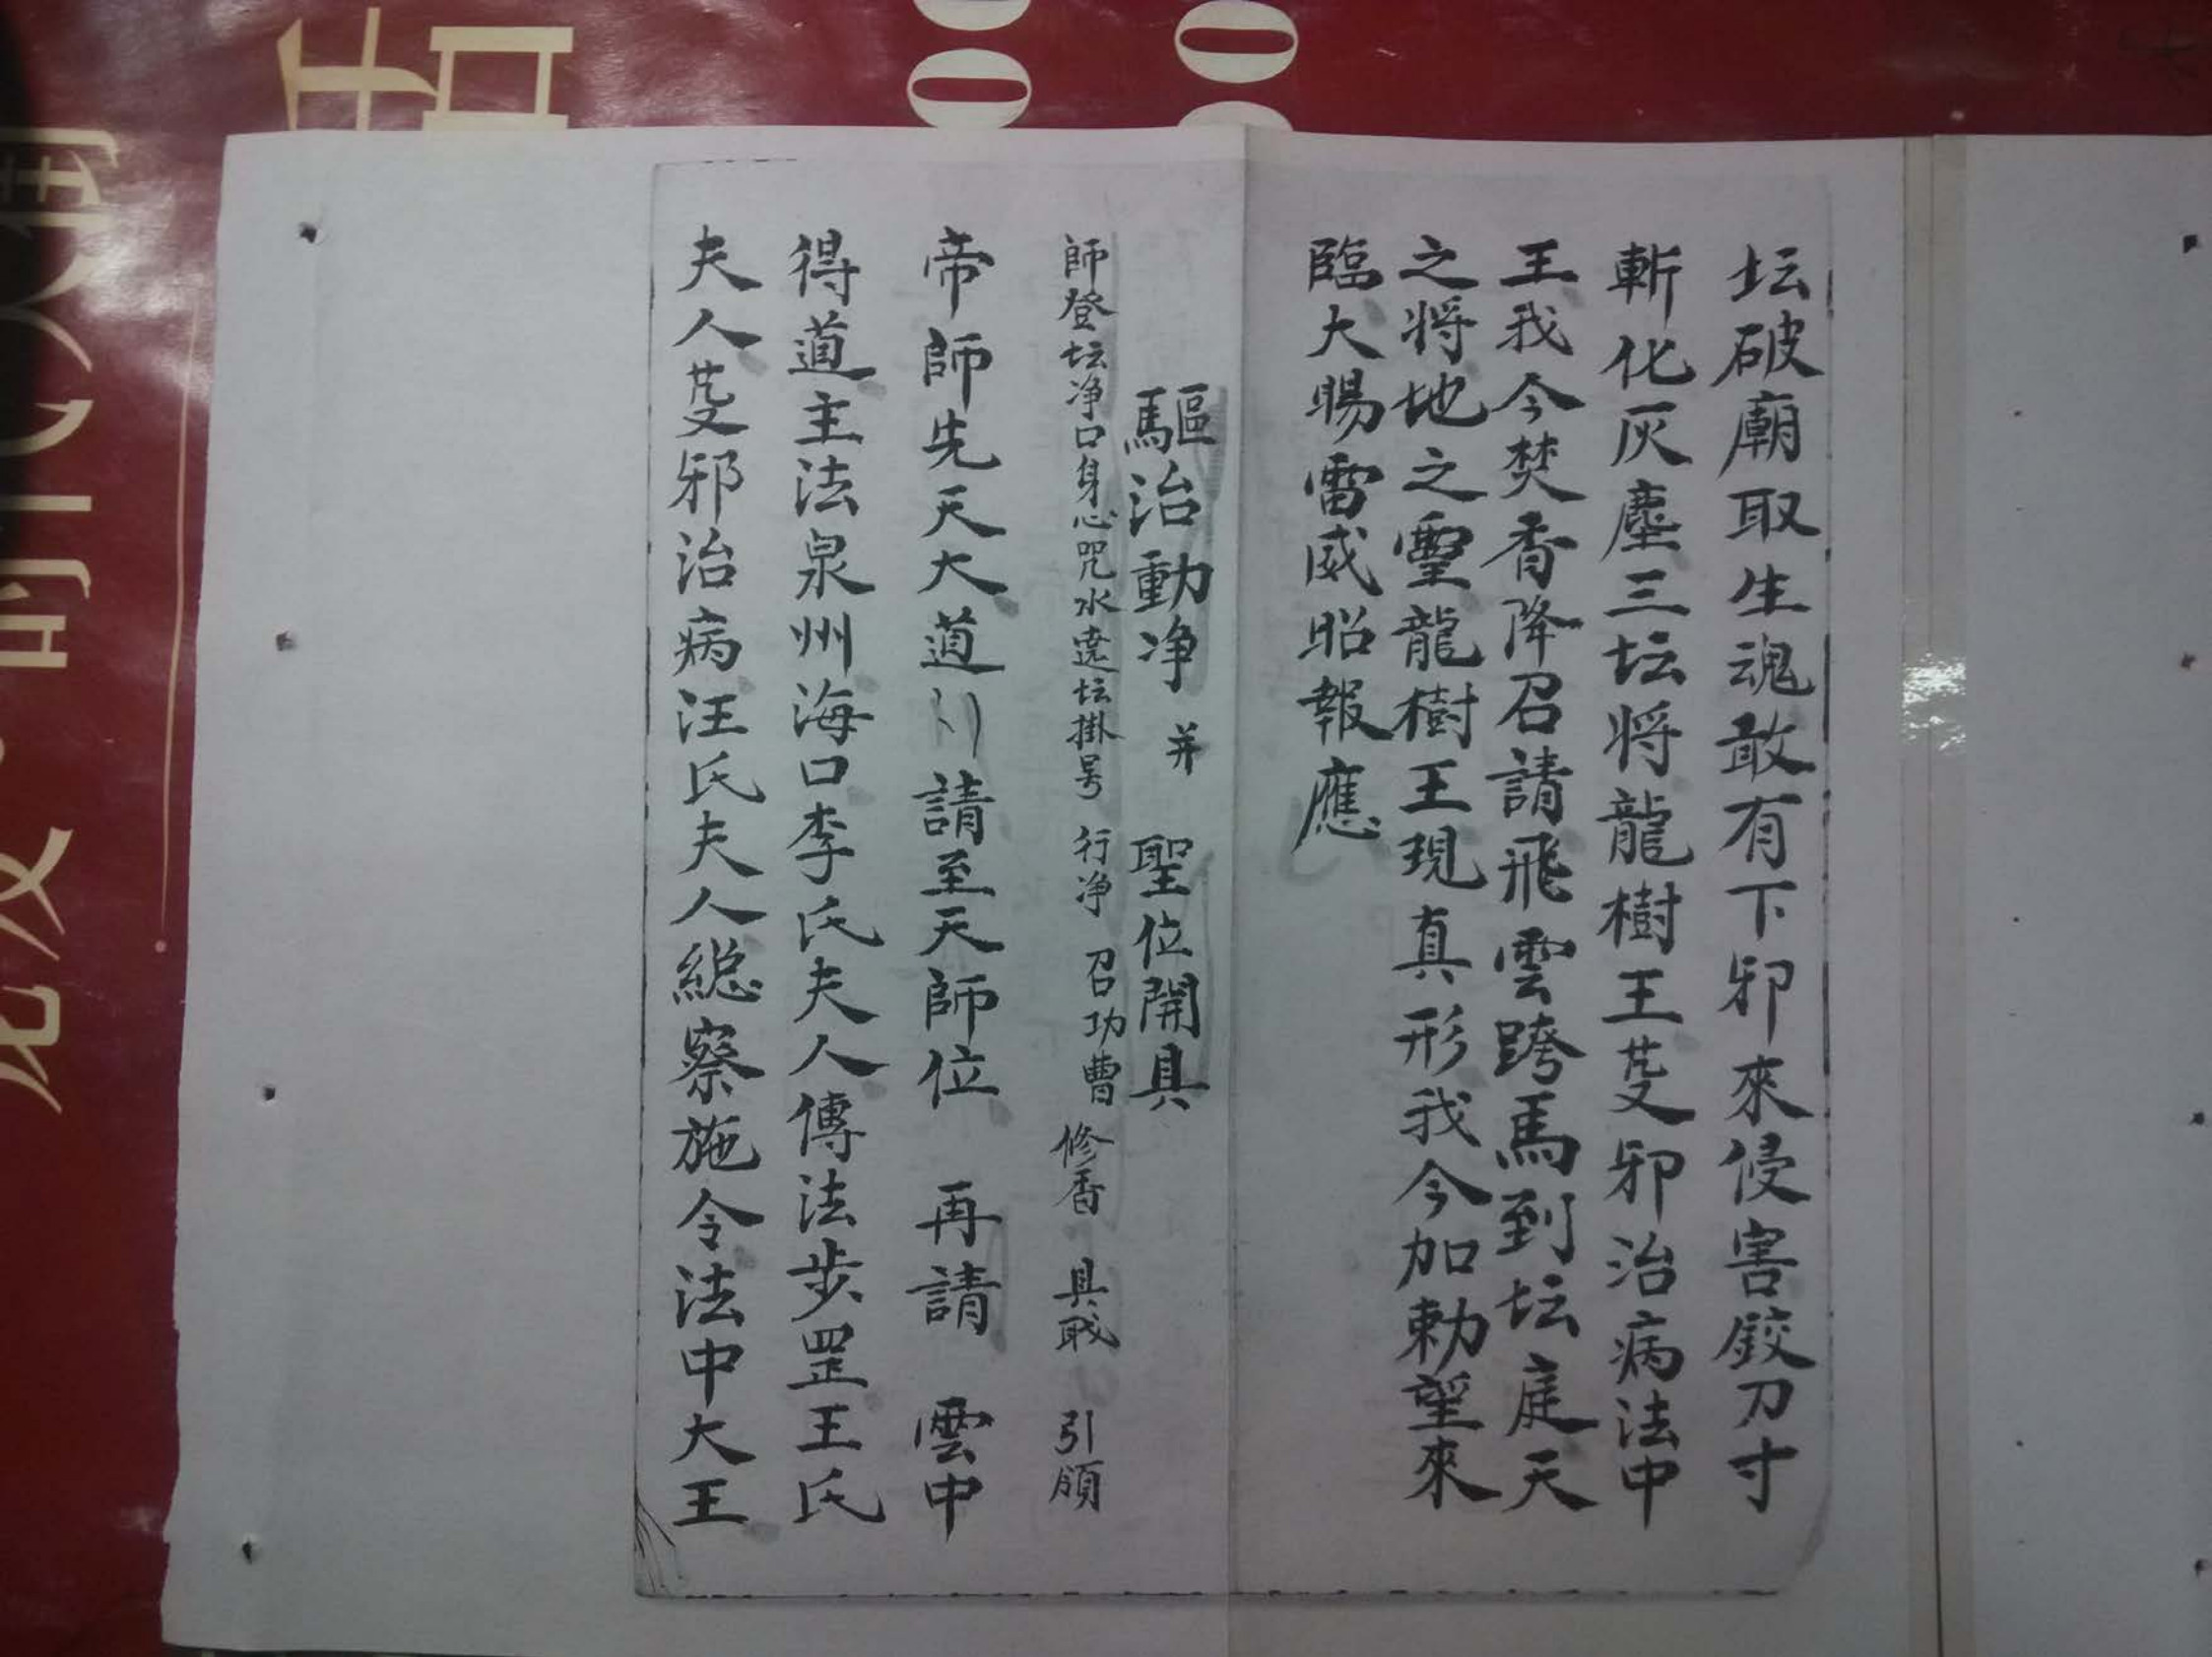 坛破廟取生魂敢有下邪來侵害鉸刀寸
斬化灰塵三坛将龍樹王芟邪治病法中
王我今焚香降召請飛雲跨馬到坛庭天
之将地之霊龍樹王現真形我今加勅望來
臨大賜雷威昭報應
驅治動净 并 聖位開具
師登坛净口身心咒水遶坛掛号 行净 召功曹 修香 具職 引頒
帝師先天大道 請至天師位 再請 雲中
得道主法泉州海口李氏夫人傳法步罡王氏
夫人芟邪治病汪氏夫人総察施令法中大王